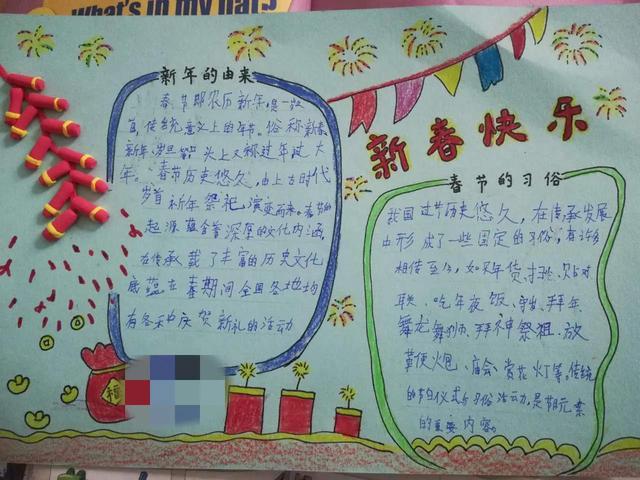 What's in my
新年的由来
春节即农历新年,是一岁
首,传统意义上的年节。俗称新春
新年、岁旦、头上又称过年过大
年。春节历史悠久,由上古时代
岁首祈年祭祀演变而来。春节的
起源蕴含着深厚的文化内涵,
在传承载了丰富的历史文化
底蕴在春期间全国各地均
有各种庆贺新礼的活动
新春快乐
春节的习俗
我国过节历史悠久,在传承发展
中形成了一些固定的习俗,有许多
相传至今,如买年货,扫尘,贴对
联、吃年夜饭、守岁、拜年、
舞龙舞狮、拜神祭祖、放
鞭炮、庙会、赏花灯等。传统
的节日仪式与习俗活动,是节元素
的重要内容。
福